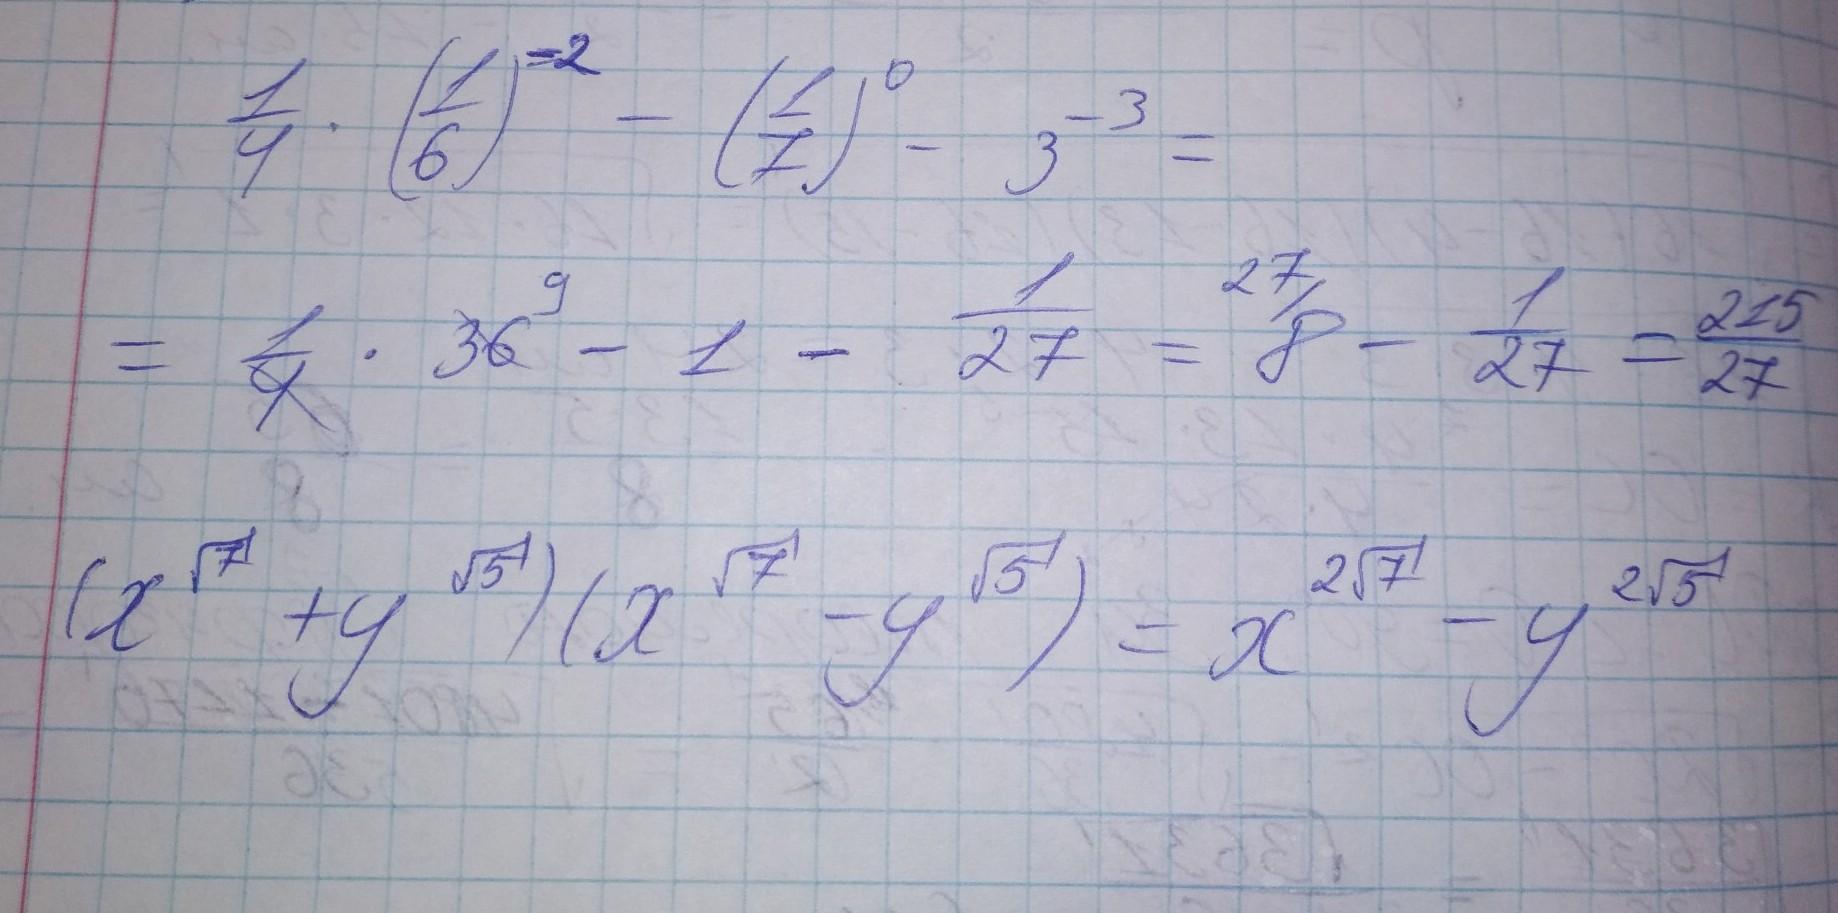 1/4 · (1/6)^-2 - (1/7)^0 - 3^-3 =
= 1/4 · 36^9 - 1 - 1/27 = ^27/8 - 1/27 = 215/27
(x^√7 + y^√5)(x^√7 - y^√5) = x^2√7 - y^2√5